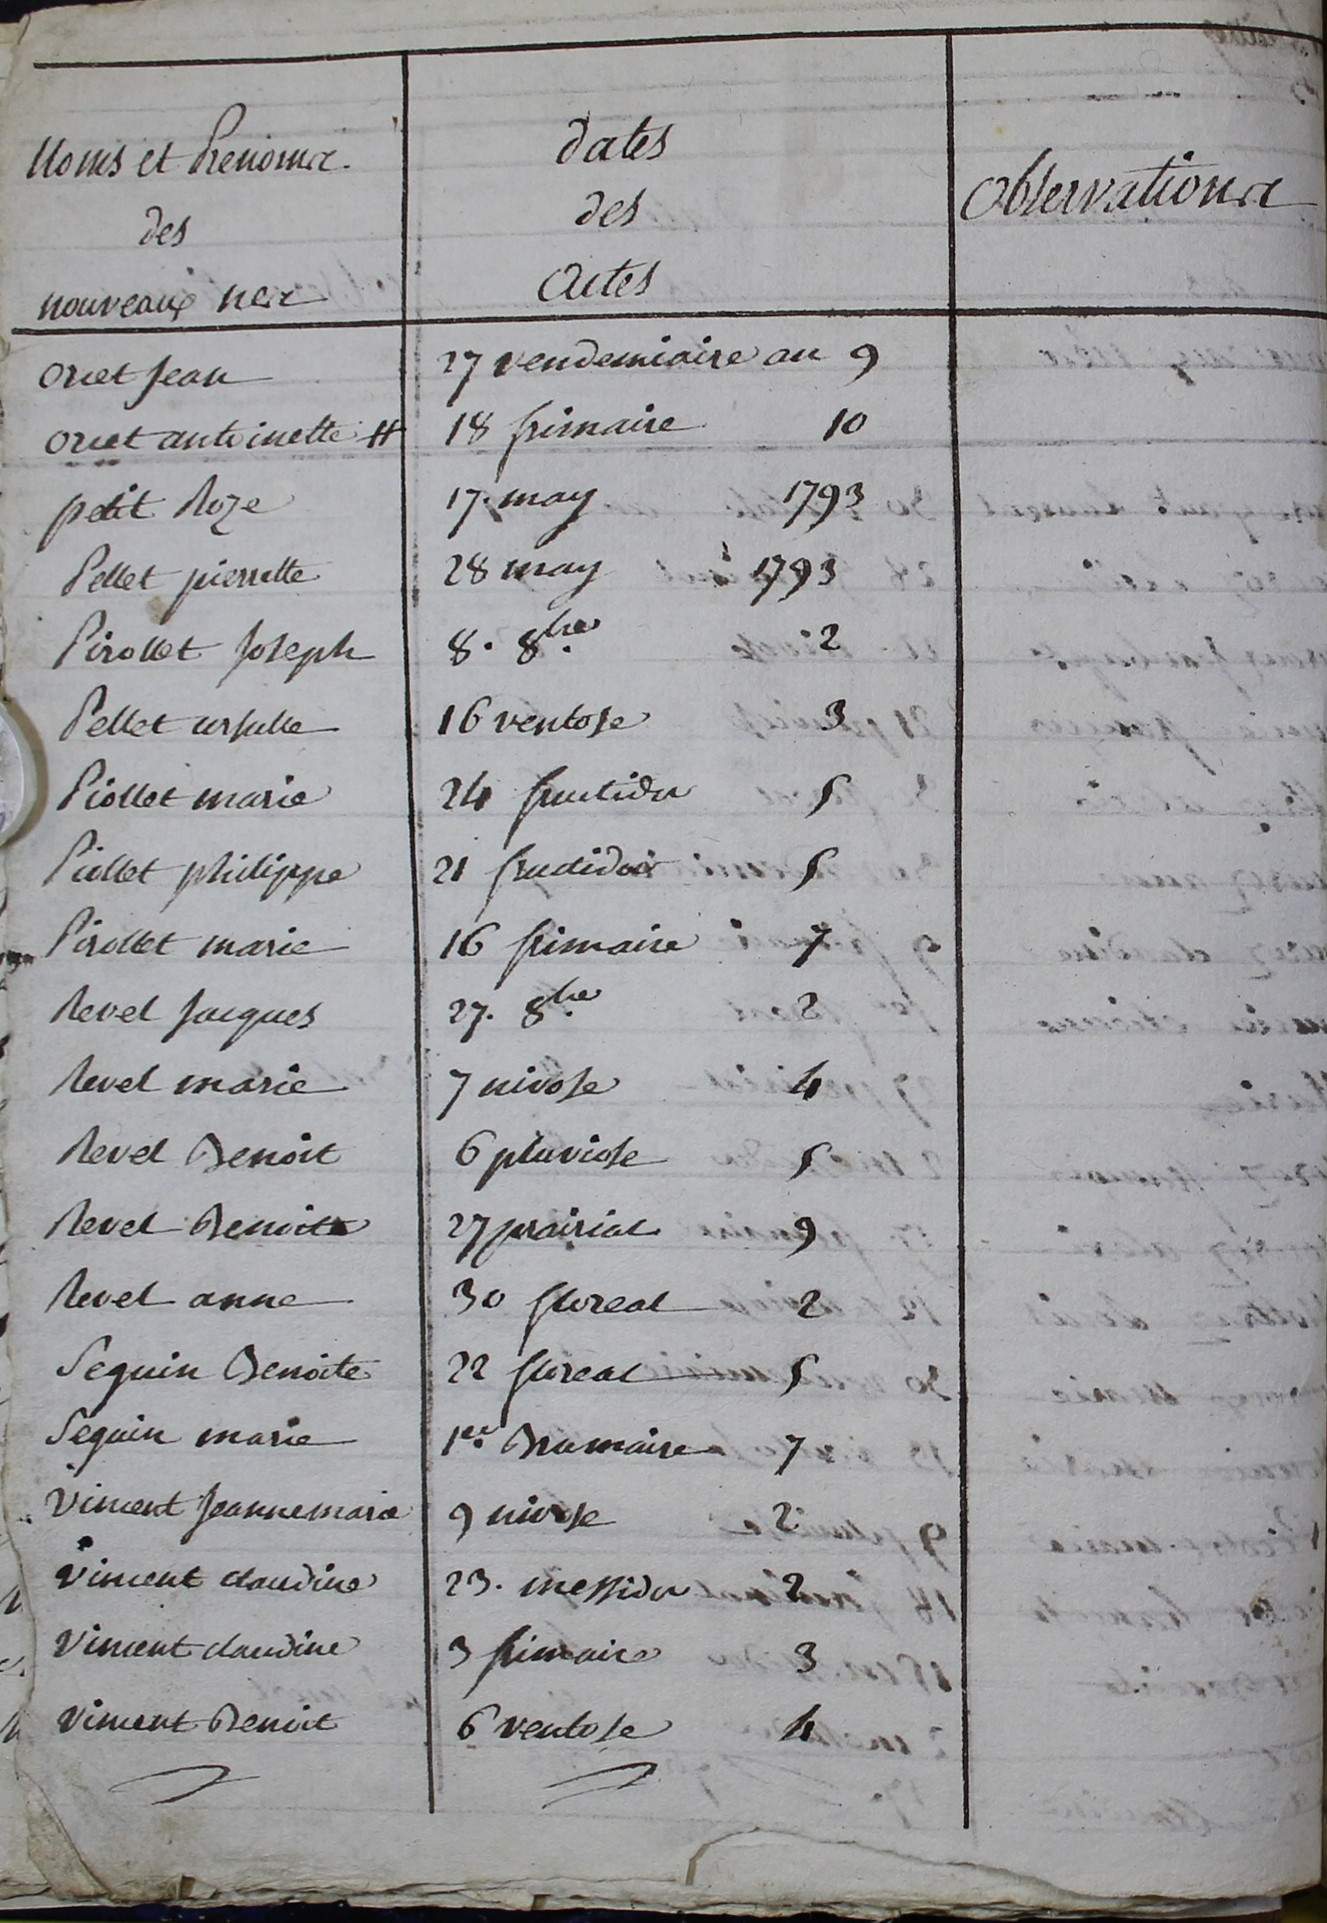 Noms et Prenoms
des
nouveaux nes
dates
des
actes
Observations
oriet Jean 27 vendemiaire an 9
oriet antoinette # 18 frimaire 10
petit Roze 17. may 1793
Pellet pierrette 28 may 1793
Pirollet Joseph 8. 8bre 2
Pellet ursulle 16 ventose 3
Piollet marie 24 fructidor 5
Piollet philippe 21 fructidor 5
Pirollet marie 16 frimaire 7
Revel Jacques 27. 8bre 2
Revel marie 7 nivose 4
Revel Benoit 6 pluviose 5
Revel Benoite 27 prairial 9
Revel anne 30 floreal 2
Seguin Benoite 22 floreal 5
Seguin marie 1er Brumaire 7
Vincent Jeannemarie 9 nivose 2
Vincent claudine 23. messidor 2
Vincent claudine 3 frimaire 3
Vincent Benoit 6 ventose 4